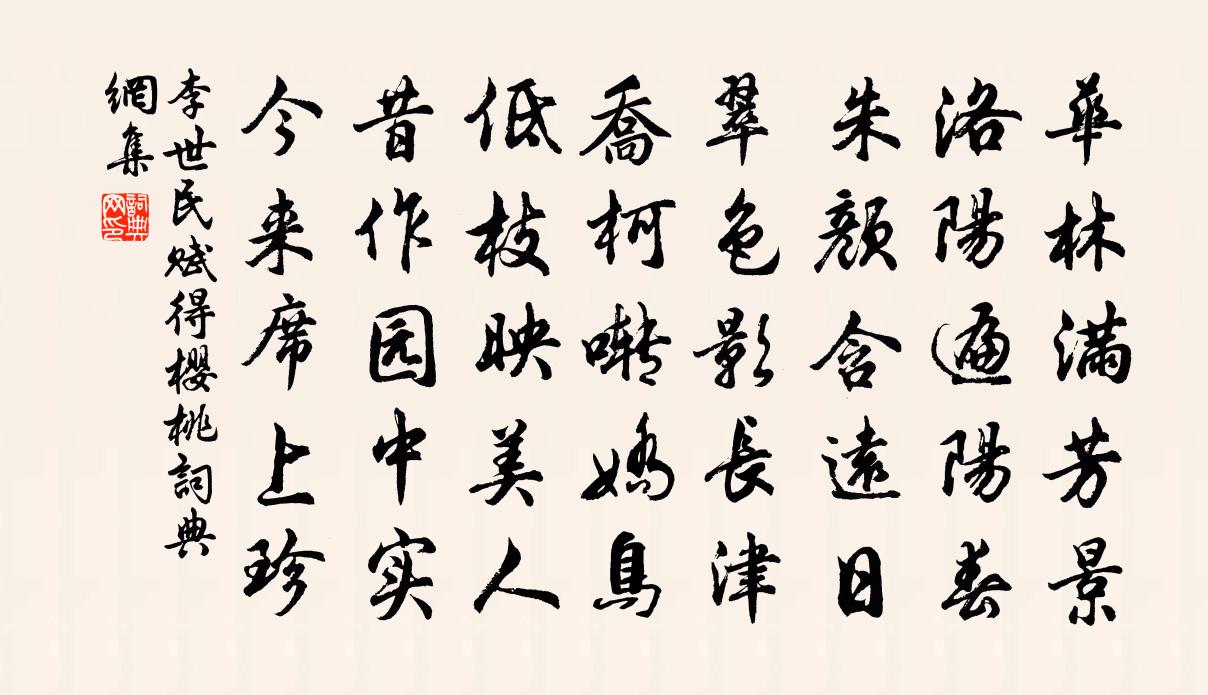 華林滿芳景
洛陽遍陽春
朱顏含遠日
翠色影長津
喬柯囀嬌鳥
低枝映美人
昔作园中实
今来席上珍
李世民賦得櫻桃詞典
網集
詞典
网印